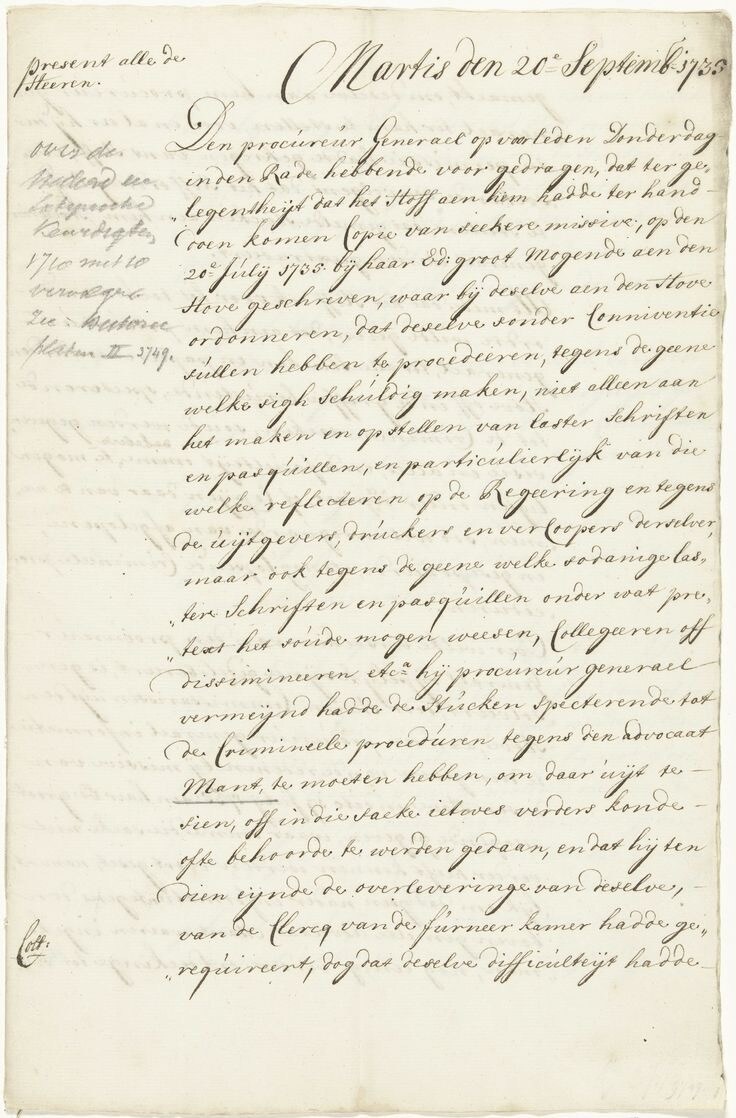 present alle de
Heeren.
Martis den 20e Septemb: 1735
Den procureur Generael op voorleden Donderdag
inden Rade hebbende voor gedragen, dat ter ge„
„legentheijt dat het Hoff aen hem hadde ter hand-
doen komen Copie van seekere missive, op den
20e July 1735. bij haar Ed: groot Mogende aen den
Hove geschreven, waar bij deselve aen den Hove
ordonneren, dat deselve sonder Conniventie
sullen hebben te procedeeren, tegens de geene
welke sigh schúldig maken, niet alleen aan
het maken en opstellen van laster schriften
en pasqúillen, en particúlierlijk van die
welke reflecteren op de Regeering en tegens
de úijtgevers, drúckers en verCoopers derselver,
maar ook tegens de geene welke sodanige las„
„ter Schriften en pasqúillen onder wat pre„
„text het soúde mogen weesen, Collegeeren off
dissimineeren etca hij procúreúr generael
vermeijnd hadde de Stúcken specterende tot
de Crimineele procedúren tegens den advocaat
Mant, te moeten hebben, om daar úijt te-
sien, off in die saeke ietwes verders konde-
ofte behoorde te werden gedaan, en dat hij ten
dien eijnde de overleveringe van deselve,-
van de Clercq van de fúrneer kamer hadde ge„
„reqúireert, dog dat deselve difficúlteijt hadde-
over de
1710 met 10
Zie:
platen II 3749.
Coll: